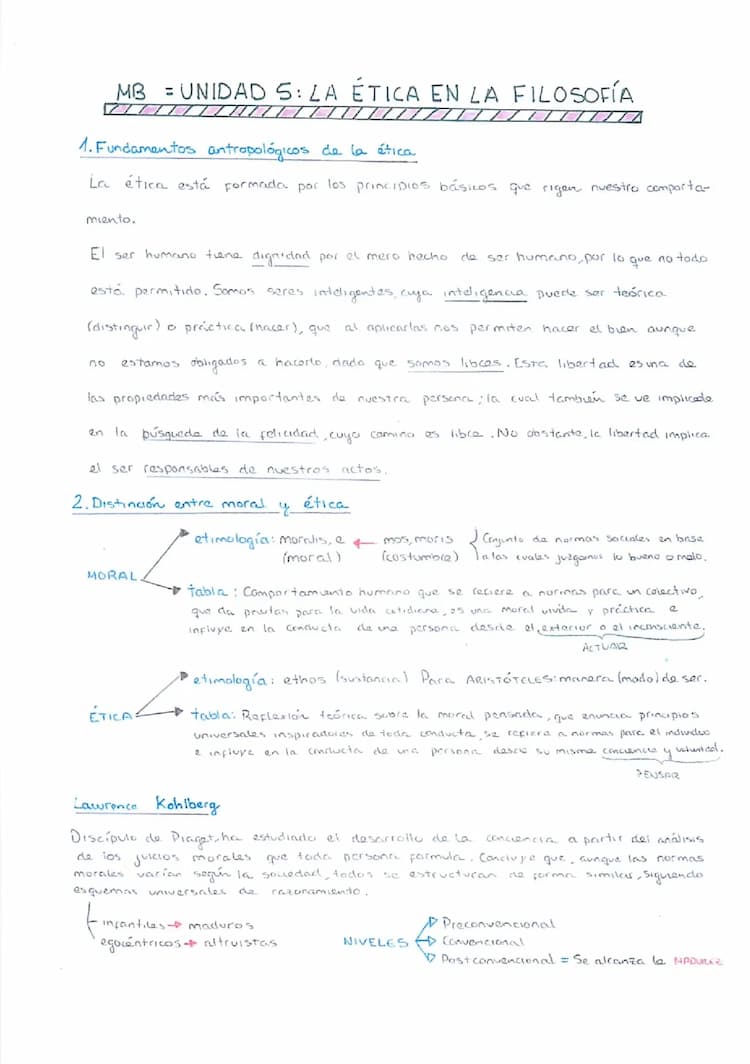 MB = UNIDAD 5: LA ÉTICA EN LA FILOSOFÍA
1. Fundamentos antropológicos de la ética
La ética está formada por los principios básicos que rigen nuestro comporta-
miento.
El ser humano tiene dignidad por el mero hecho de ser humano, por lo que no todo
está permitido. Somos seres inteligentes, cuya inteligencia puede ser teórica
(distinguir) o práctica (hacer), que al aplicarlas nos permiten hacer el bien aunque
no estamos obligados a hacerlo, dado que somos libres. Esta libertad es una de
las propiedades más importantes de nuestra persona; la cual también se ve implicada
en la búsqueda de la felicidad, cuyo camino es libre. No obstante, la libertad implica
el ser responsables de nuestros actos.
2. Distinción entre moral y ética
MORAL
etimología: moralis, e ← mos, moris { Conjunto de normas sociales en base
(moral) (costumbre) a las cuales juzgamos lo bueno o malo.
tabla: Comportamiento humano que se refiere a normas para un colectivo,
que da pautas para la vida cotidiana, es una moral vivida y práctica e
influye en la conducta de una persona desde el exterior o el inconsciente.
ACTUAR
ÉTICA
etimología: ethos (sustancia) Para ARISTÓTELES: manera (modo) de ser.
tabla: Reflexión teórica sobre la moral pensada, que enuncia principios
universales inspiradores de toda conducta, se refiere a normas para el individuo
e influye en la conducta de una persona desde su misma conciencia y voluntad.
PENSAR
Lawrence Kohlberg
Discípulo de Piaget, ha estudiado el desarrollo de la conciencia a partir del análisis
de los juicios morales que toda persona formula. Concluye que, aunque las normas
morales varían según la sociedad, todos se estructuran de forma similar, siguiendo
esquemas universales de razonamiento.
infantiles → maduros
egocéntricos → altruistas
NIVELES
Preconvencional
Convencional
Postconvencional = Se alcanza la MADUREZ